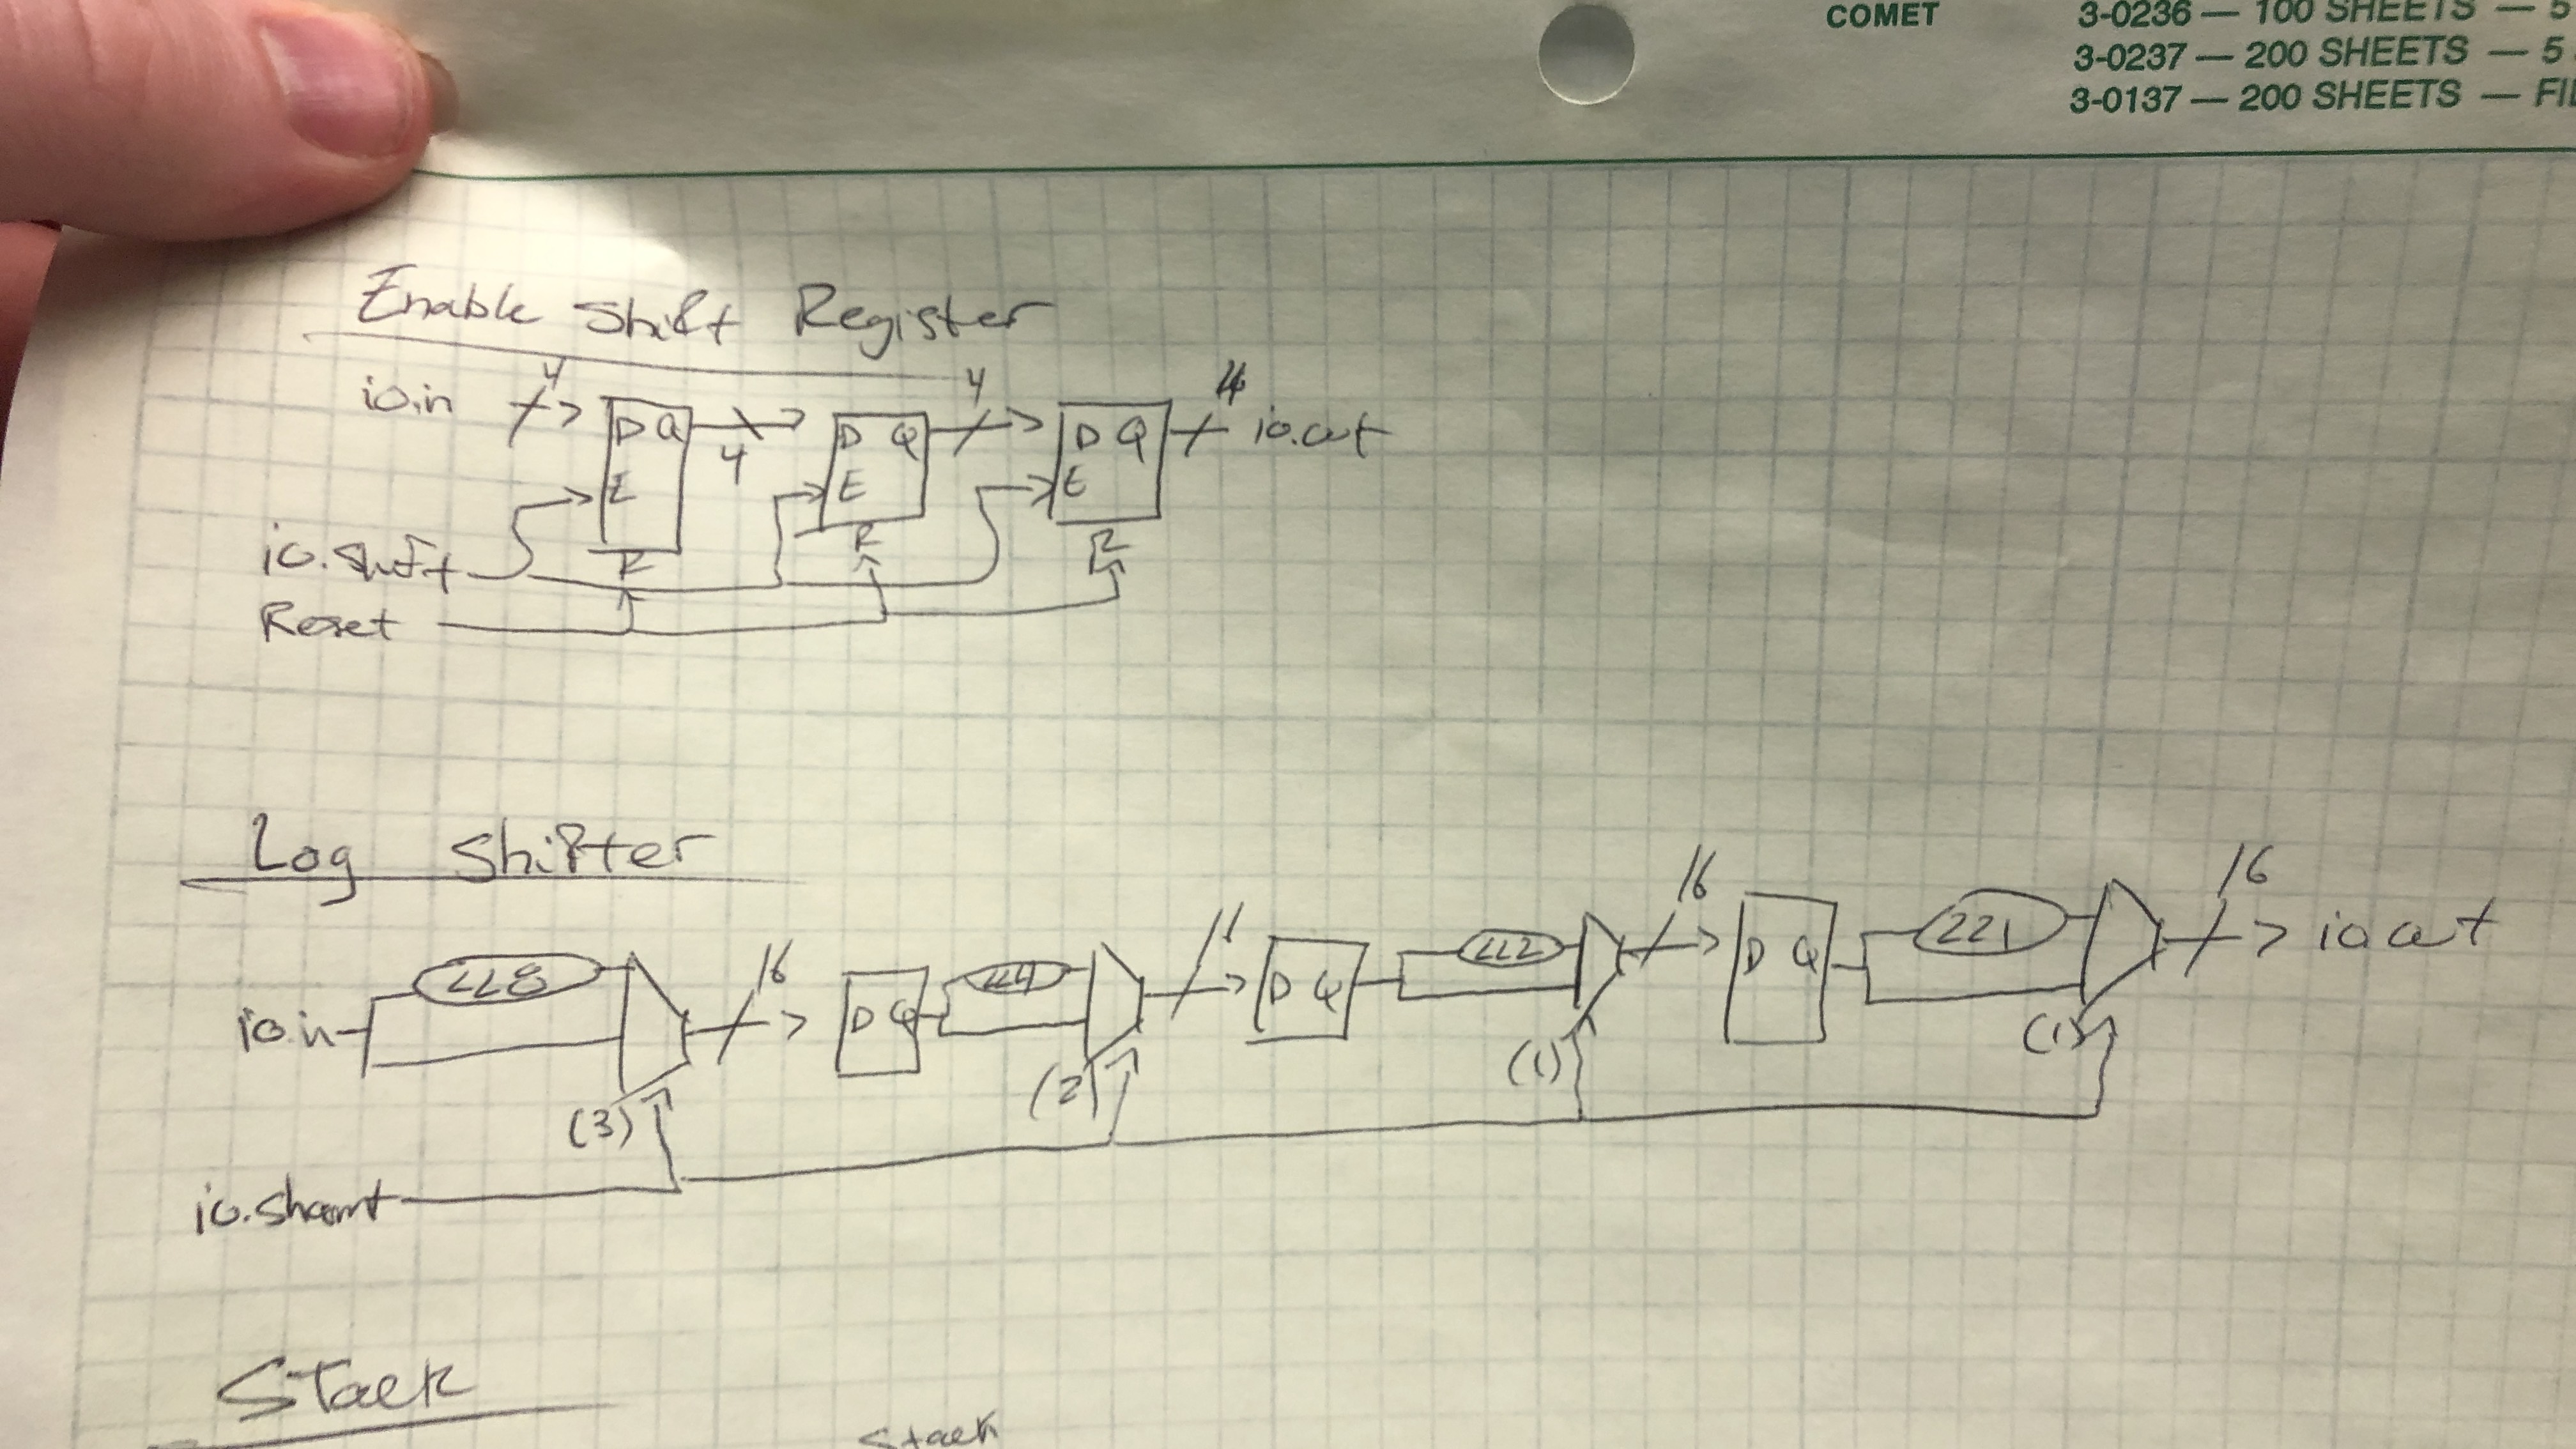 COMET
3-0236 — 100 SHEETS — 5
3-0237 — 200 SHEETS — 5
3-0137 — 200 SHEETS — FIL
Enable Shift Register
io.in 4 D Q E R 4 D Q E R 4 D Q E R 4 io.out
io.shift
Reset
Log Shifter
io.in <<8 16 D Q <<4 11 D Q <<2 16 D Q <<1 16 io.out
(3) (2) (1) (1)
io.shamt
Stack
Stack